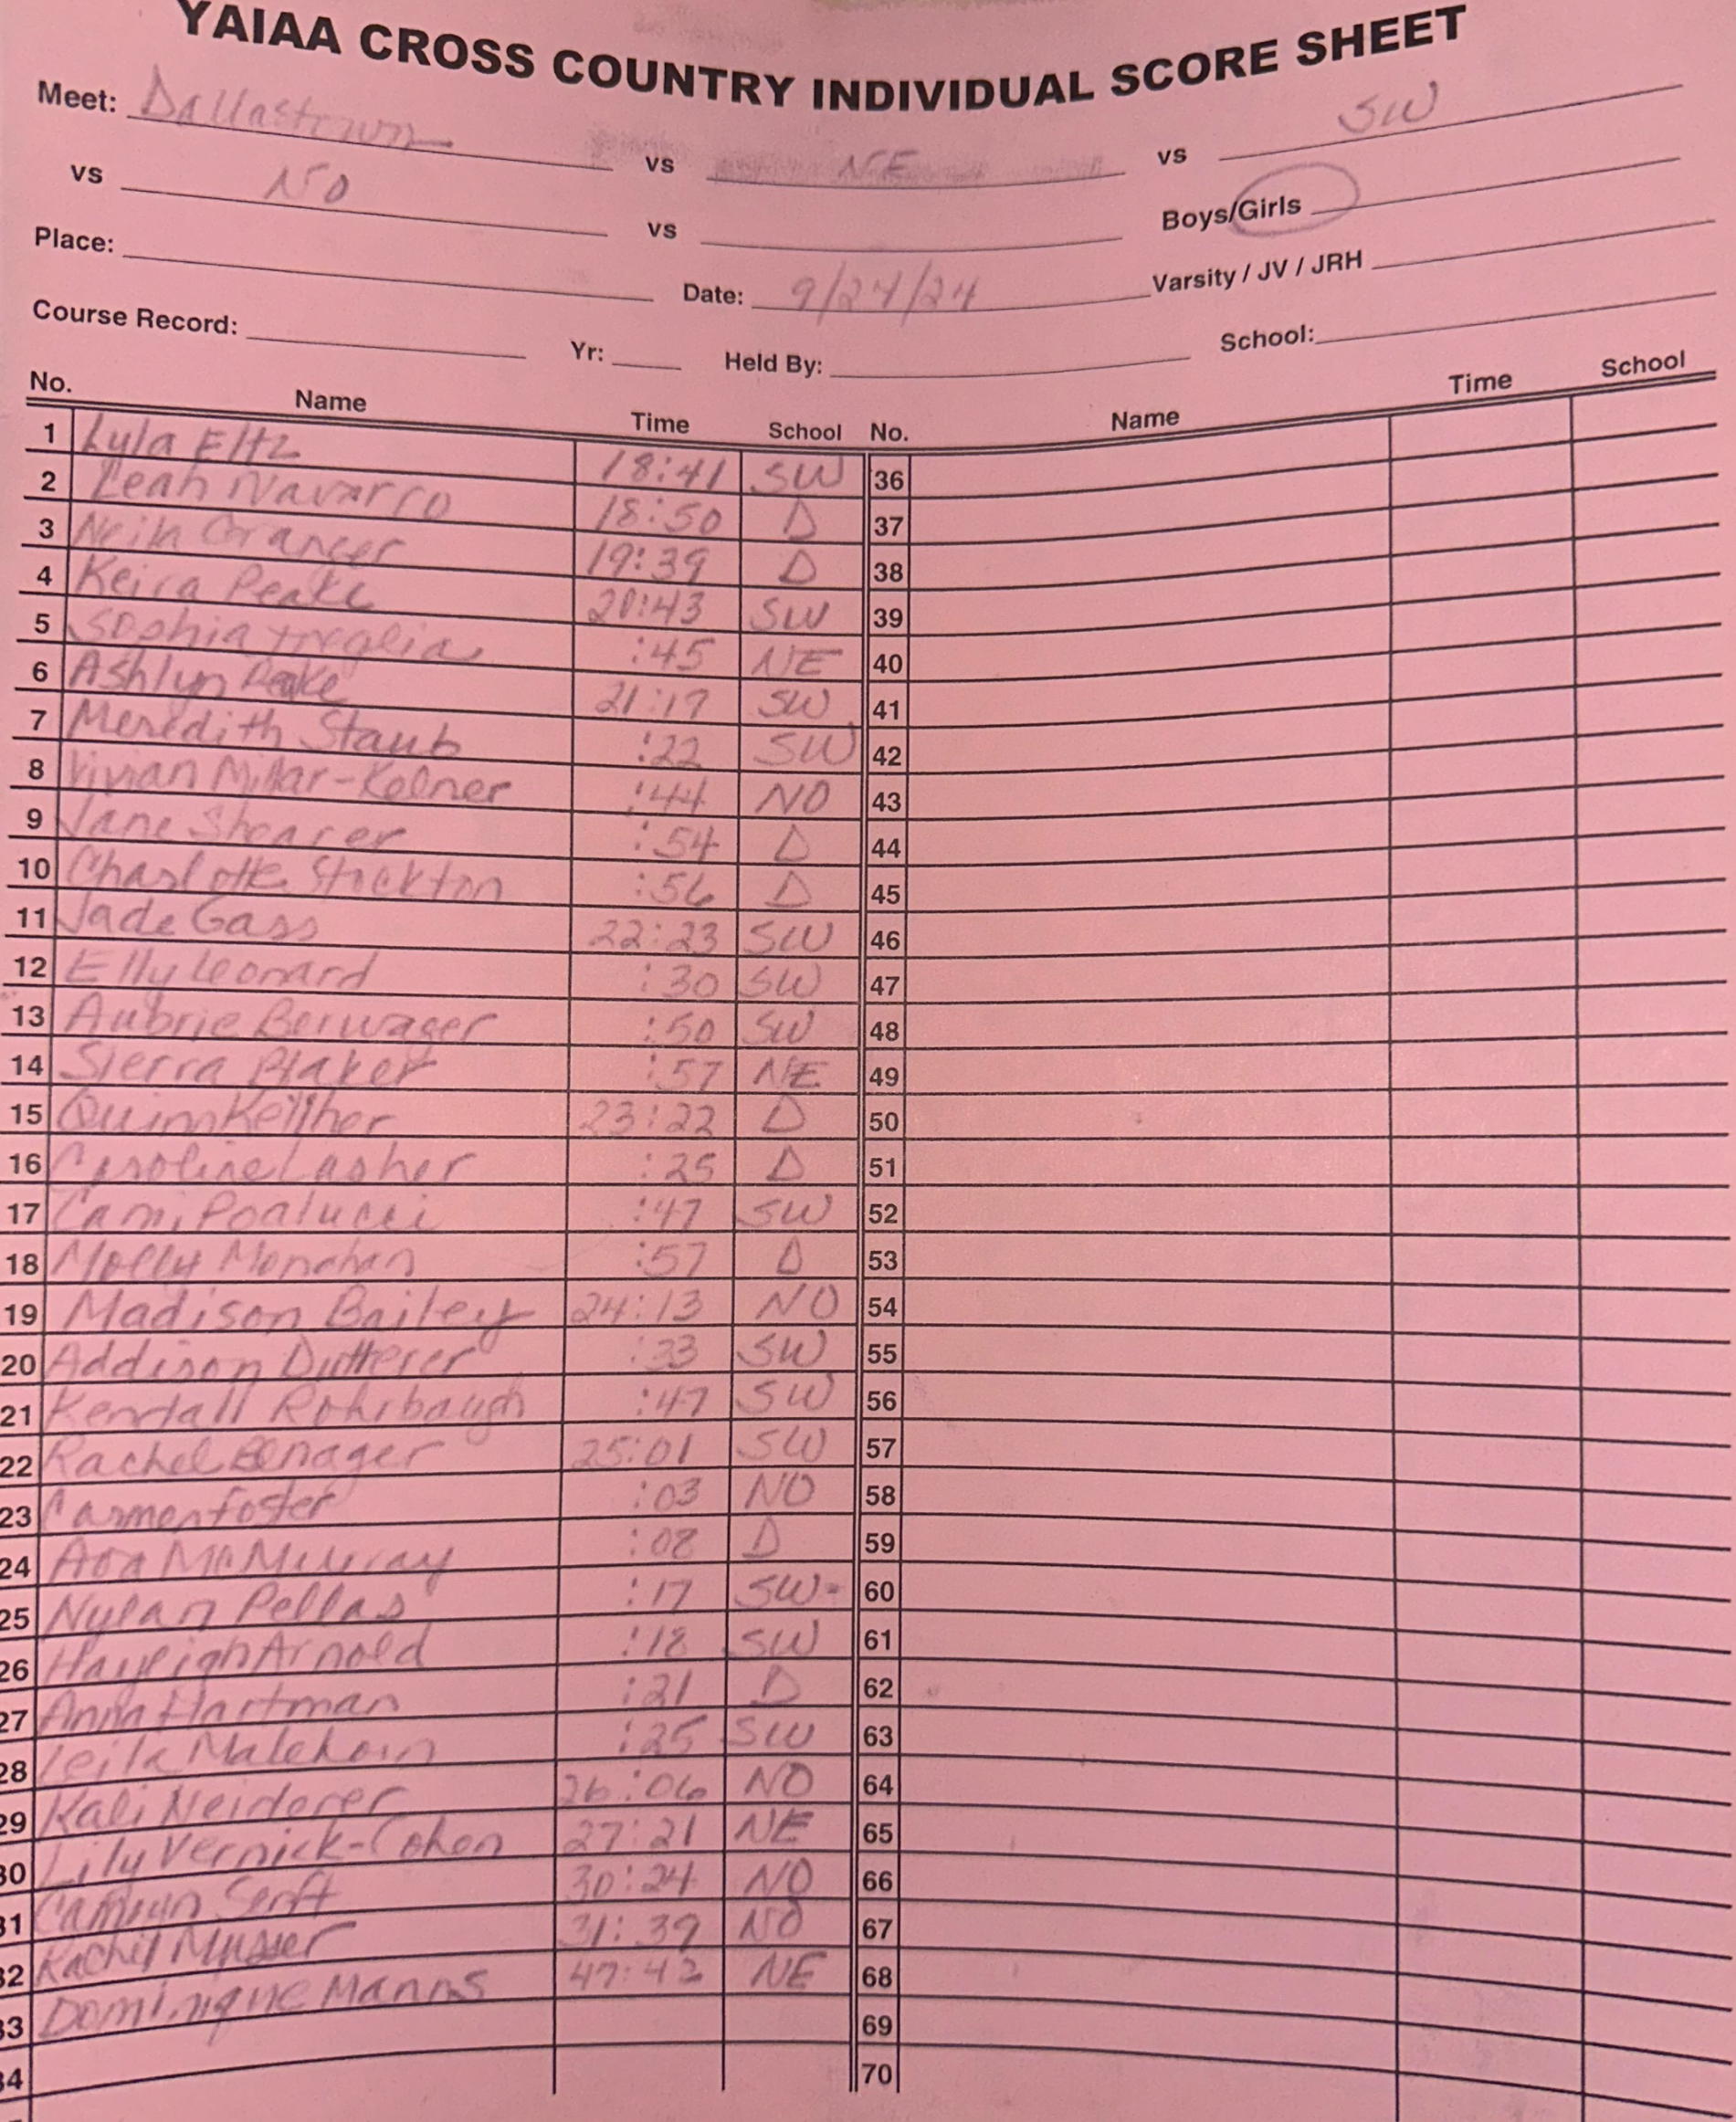 YAIAA CROSS COUNTRY INDIVIDUAL SCORE SHEET
Meet: Dallastown vs NE vs SW
vs NO vs Boys/Girls
Place: Date: 9/24/24 Varsity / JV / JRH
Course Record: Yr: Held By: School:
No. Name Time School No. Name Time School
1 Lyla Eltz 18:41 SW 36
2 Leah Navarro 18:50 D 37
3 Granger 19:39 D 38
4 Keira Peake 20:43 SW 39
5 Sophia Treglia :45 NE 40
6 Ashlyn Peake 21:19 SW 41
7 Meredith Staub :22 SW 42
8 Vivian Millar-Kelner :44 NO 43
9 Jane Shearer :54 D 44
10 Charlotte Stockton :56 D 45
11 Jade Gass 22:23 SW 46
12 Elly Leonard :30 SW 47
13 Aubrie Berwager :50 SW 48
14 Sierra Blaker :57 NE 49
15 Quinn Kelliher 23:22 D 50
16 Caroline Lasher :25 D 51
17 Cami Poalucci :47 SW 52
18 Molly Monahan :57 D 53
19 Madison Bailey 24:13 NO 54
20 Addison Dutterer :33 SW 55
21 Kendall Rohrbaugh :47 SW 56
22 Rachel 25:01 SW 57
23 Carmen Foster :03 NO 58
24 Ava McMurray :08 D 59
25 Nylan Pellas :17 SW 60
26 Hayleigh Arnold :18 SW 61
27 Anna Hartman :21 D 62
28 Leila Malehorn :25 SW 63
29 Kali Neiderer 26:06 NO 64
30 Lily Vernick-Cohen 27:21 NE 65
31 Camryn Senft 30:24 NO 66
32 Rachel Musser 31:39 NO 67
33 Dominique Manns 47:42 NE 68
34 69
70